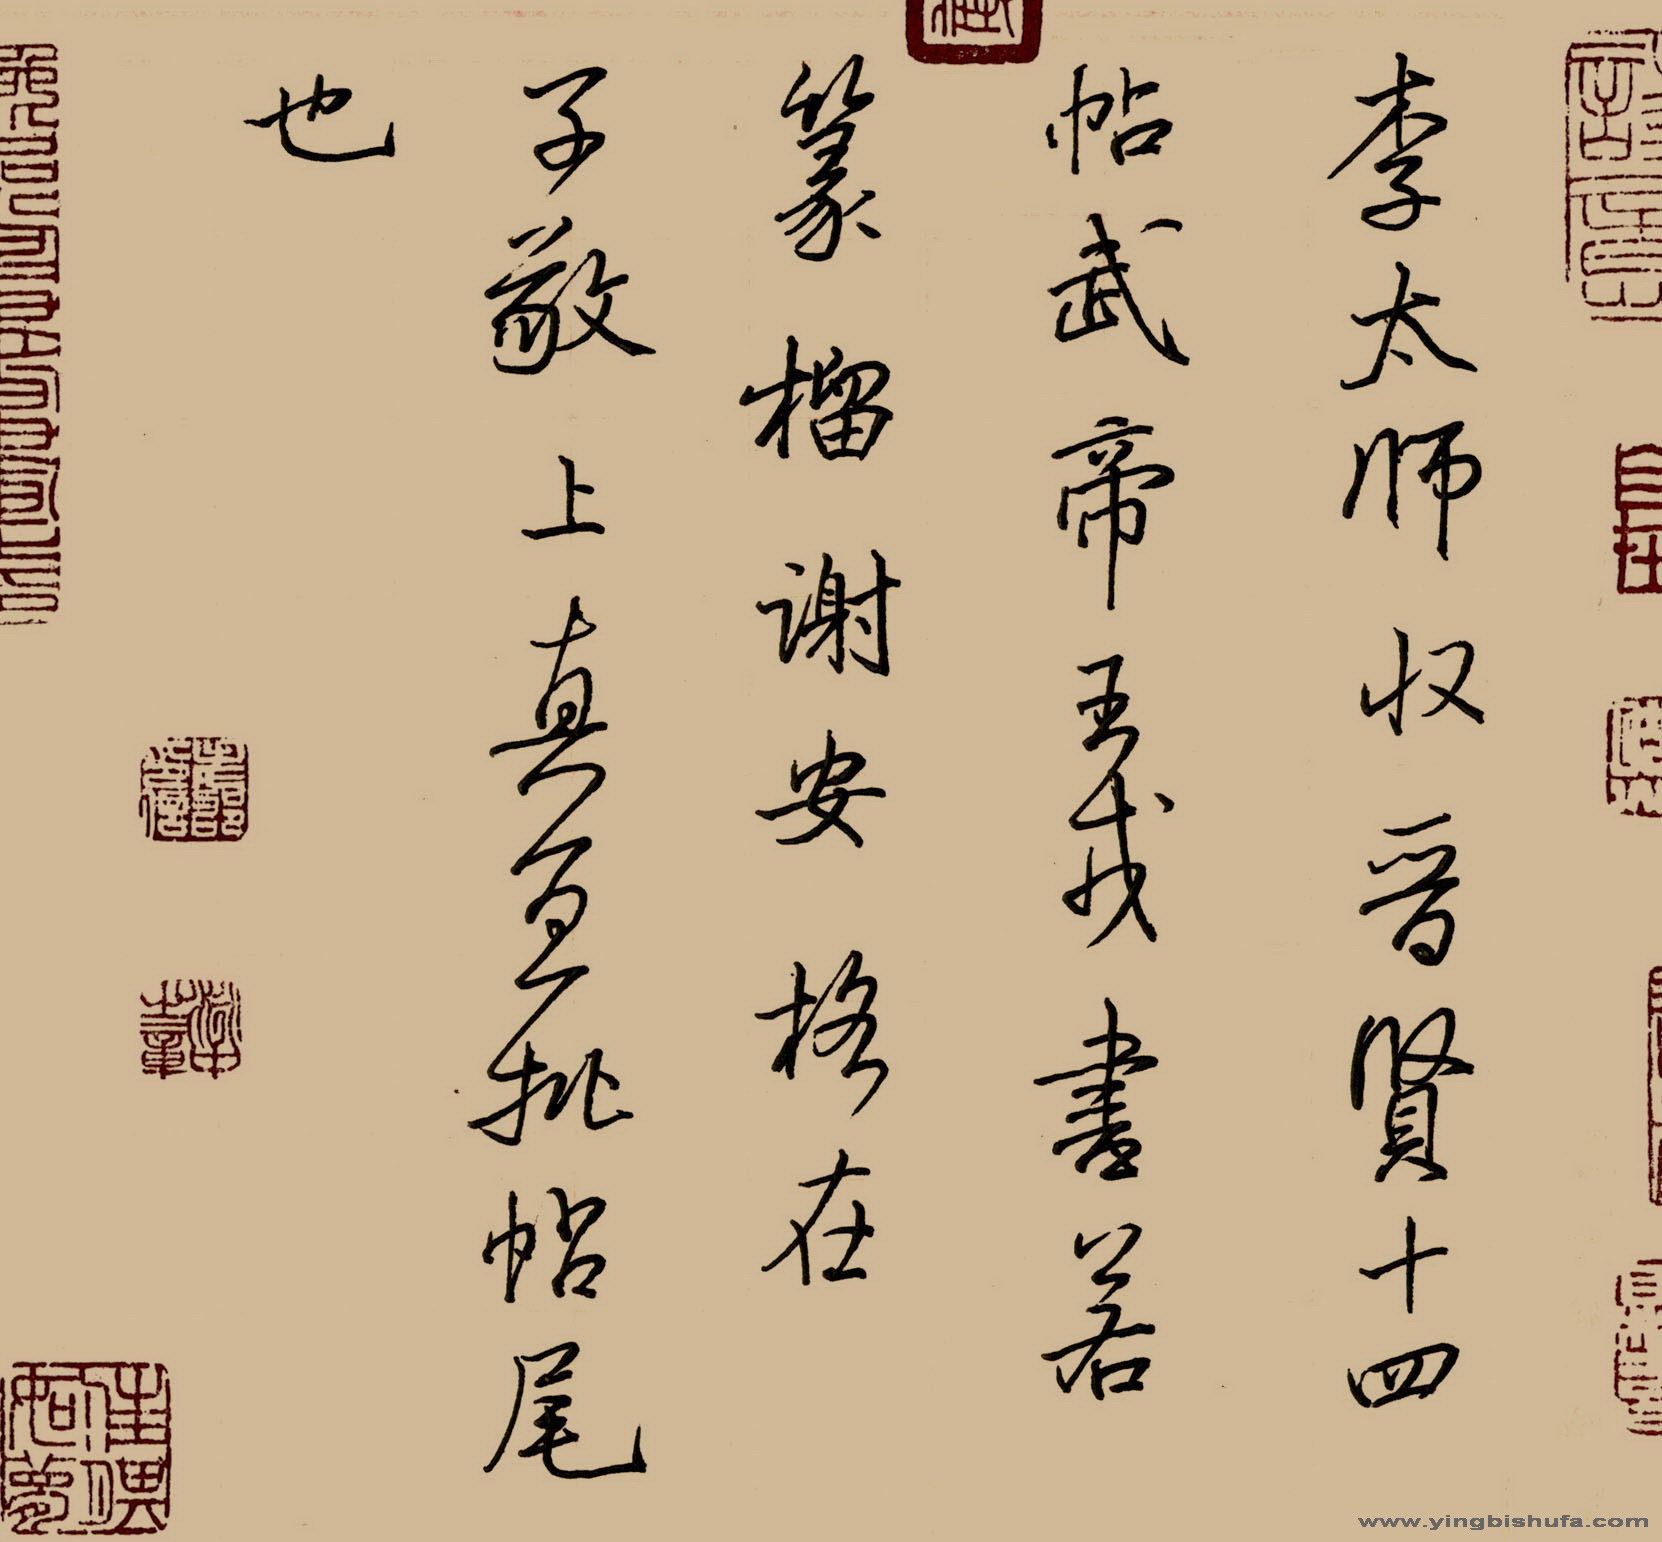 李太师收晋贤十四
帖武帝王戎書若
篆榴谢安格在
子敬上真宜批帖尾
也
www.yingbishufa.com